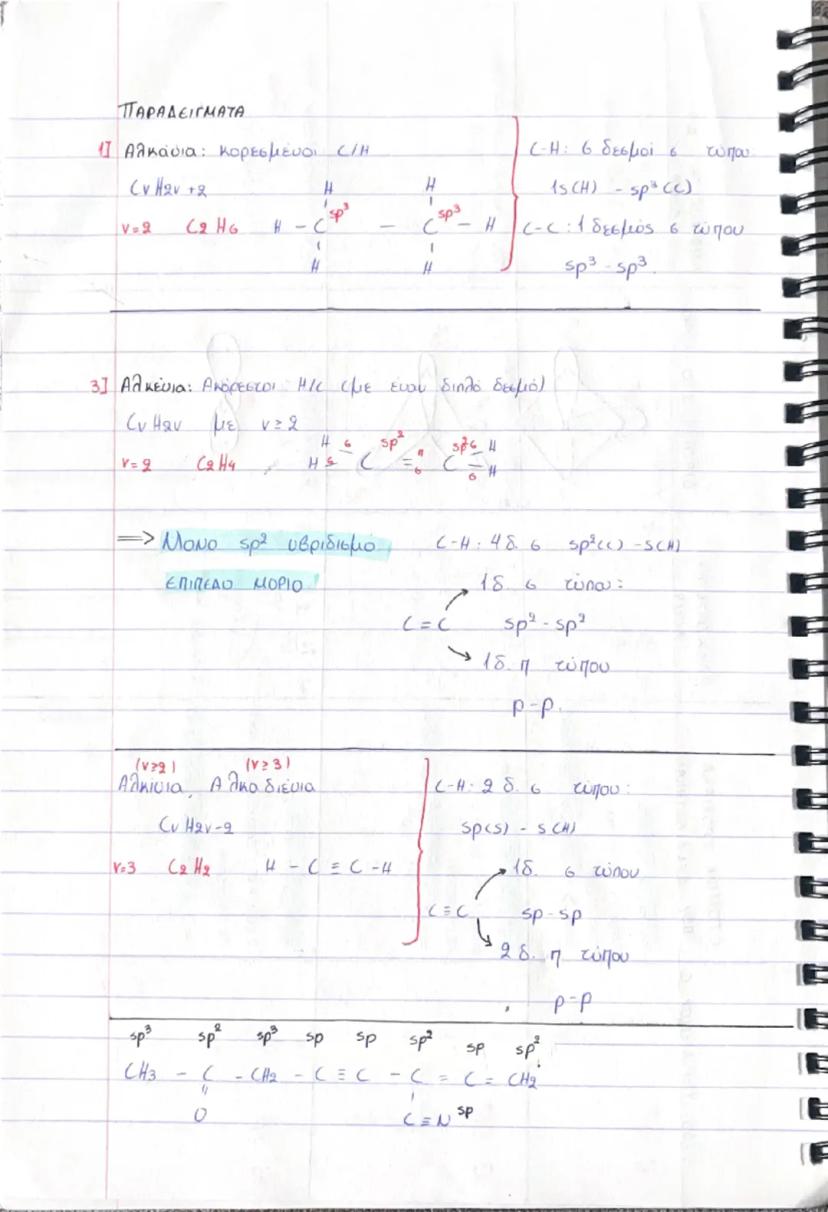 ΠΑΡΑΔΕΙΓΜΑΤΑ
1] Αλκάνια: κορεσμένοι C/H
CνH2ν+2
H H
ν=2 C2H6 H - C sp³ - C sp³ - H
H H
C-H: 6 δεσμοί σ τύπου
1s(H) - sp³(C)
C-C: 1 δεσμός σ τύπου
sp³-sp³.
3] Αλκένια: Ακόρεστοι H/C (με έναν διπλό δεσμό)
CνH2ν με ν≥2
H σ sp² sp² σ H
ν=2 C2H4 H σ C = π σ C = H
σ
⟹ Μονο sp² υβριδισμό
ΕΠΙΠΕΔΟ ΜΟΡΙΟ
C-H: 4δ. σ sp²(C) - s(H)
1δ. σ τύπου:
C=C sp²-sp²
1δ. π τύπου
p-p.
(ν≥2) (ν≥3)
Αλκίνια, Αλκαδιένια
CνH2ν-2
ν=3 C2H2 H - C ≡ C - H
C-H: 2 δ. σ τύπου:
sp(s) - s(H)
1δ. σ τύπου
C≡C sp-sp
2δ. π τύπου
p-p
sp³ sp² sp³ sp sp sp² sp sp²
CH3 - C - CH2 - C ≡ C - C = C = CH2
O C≡N sp